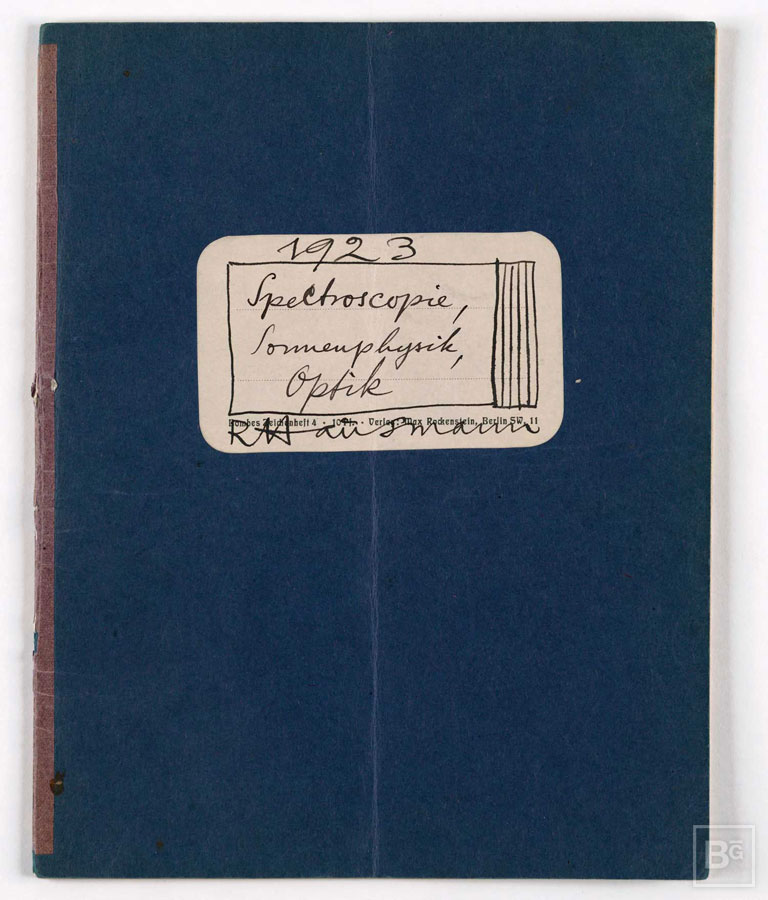 1923
Spectroscopie,
Sonnenphysik,
Optik
Rombes Zeichenheft 4 • 10 Pf. • Verlag: Max Rockenstein, Berlin SW. 11
RHausmann
BG